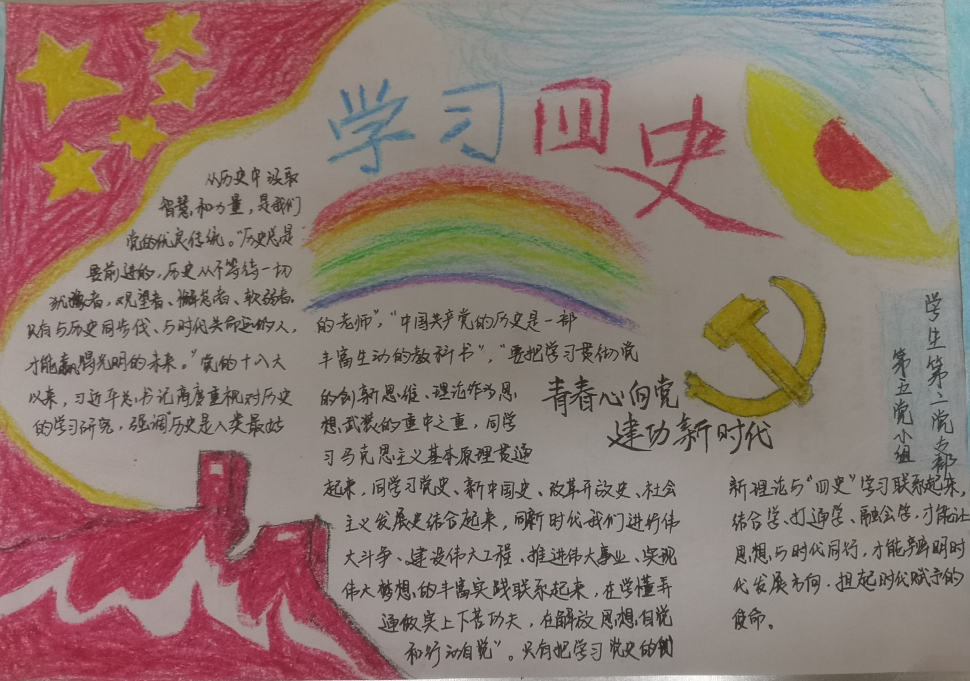 学习四史
从历史中汲取
智慧和力量，是我们
党的优良传统。“历史总是
要前进的，历史从不等待一切
犹豫者，观望者、懈怠者、软弱者，
只有与历史同步伐、与时代共命运的人，
才能赢得光明的未来。”党的十八大
以来，习近平总书记高度重视对历史
的学习研究，强调“历史是人类最好
的老师”，“中国共产党的历史是一部
丰富生动的教科书”，“要把学习贯彻党
的创新思维、理论作为思
想武装的重中之重，同学
习马克思主义基本原理贯通
起来，同学习党史、新中国史、改革开放史、社会
主义发展史结合起来，同新时代我们进行伟
大斗争、建设伟大工程、推进伟大事业、实现
伟大梦想的丰富实践联系起来，在学懂弄
通做实上下苦功夫，在解放思想自觉
和行动自觉”。只有把学习党史的创
新理论与“四史”学习联系起来，
结合学、打通学、融会学，才能让
思想与时代同行，才能明时
代发展方向，担起时代赋予的
使命。
青春心向党
建功新时代
学生第二党支部
第五党小组